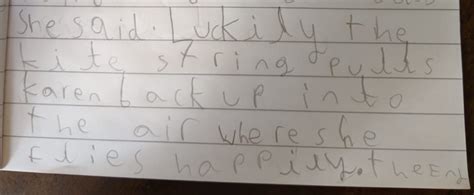 She said. Luckily the
kite string pulls
karen back up into
the air where she
flies happily. the End